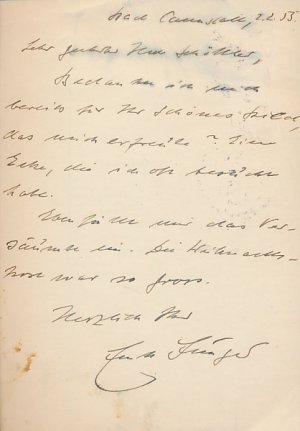 Bad Cannstatt, 2.2.55
Sehr geehrter Herr Schöller,
Bedankte ich mich
bereits für Ihr schönes Bild,
das mich erfreute? Eine
Ecke, die ich oft besucht
habe.
Eben fällt mir das Ver-
säumte ein. Die Weihnachts-
post war so gross.
Herzlich Ihr
Ernst Jünger